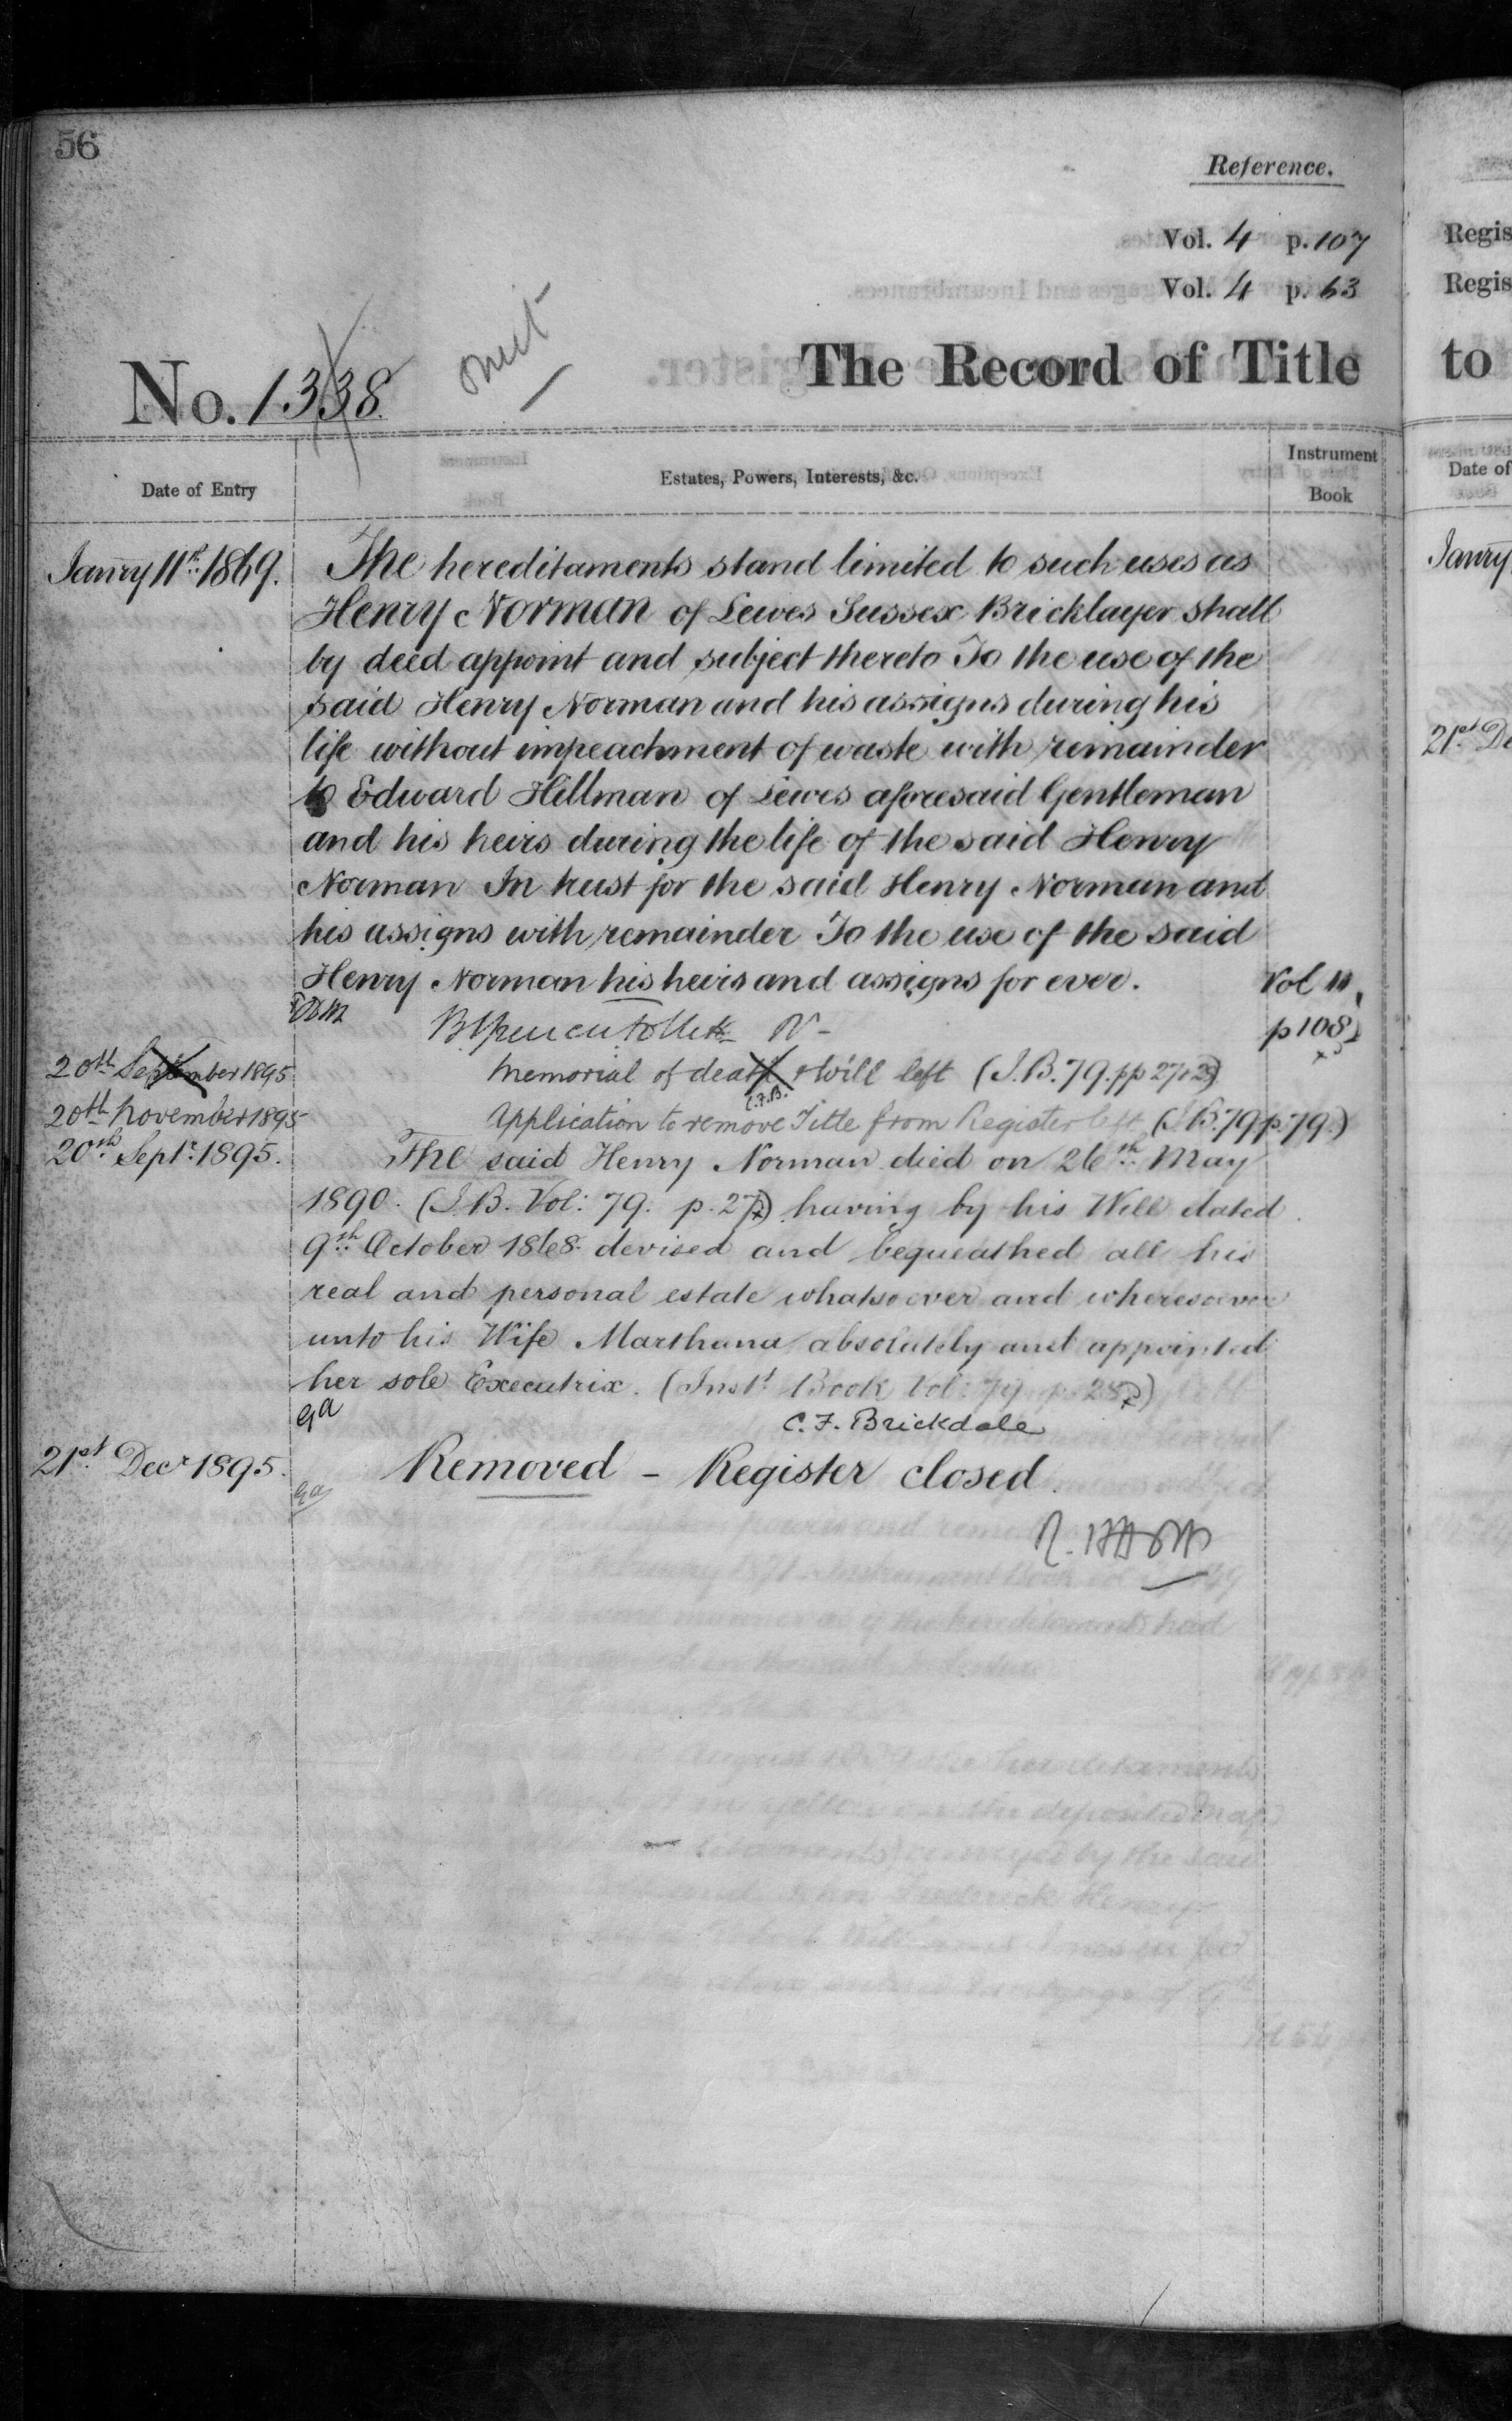 56
Reference.
Vol. 4 p. 107
Vol. 4 p. 63
omit
No. 1338.
The Record of Title
Date of Entry
Estates, Powers, Interests, &c.
Instrument Book
Janry 11th 1869.
The hereditaments stand limited to such uses as
Henry Norman of Lewes Sussex Bricklayer shall
by deed appoint and subject thereto To the use of the
said Henry Norman and his assigns during his
life without impeachment of waste with remainder
to Edward Hillman of Lewes aforesaid Gentleman
and his heirs during the life of the said Henry
Norman In trust for the said Henry Norman and
his assigns with remainder To the use of the said
Henry Norman his heirs and assigns for ever.
Vol 11
p 108
20th September 1895
Memorial of death & Will left (I.B. 79. pp 27 & 28)
C.F.B.
20th November 1895
Application to remove Title from Register left (I.B. 79 p. 79.)
20th Septr. 1895.
The said Henry Norman died on 26th May
1890. (I.B. Vol: 79. p. 27) having by his Will dated
9th October 1868 devised and bequeathed all his
real and personal estate whatsoever and wheresoever
unto his Wife Marthana absolutely and appointed
her sole Executrix. (Inst. Book Vol: 79 p. 28)
C. F. Brickdale
21st Decr 1895.
Removed - Register closed.
Regis
Regis
to
Date of
Janry
21st De